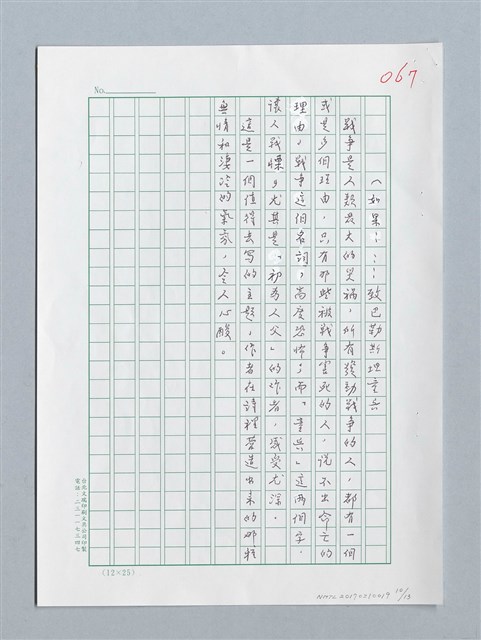 067
No.
(如果⋯⋯致巴勒斯坦童兵
戰爭是人類最大的災禍,所有發動戰爭的人,都有一個
或是多個理由,只有那些被戰爭害死的人,說不出喪亡的
理由,戰爭這個名詞,高度恐怖,而「童兵」這兩個字,
讓人戰慄,尤其是「初為人父」的作者,感受尤深。
這是一個值得去寫的主題,作者在詩裡營造出來的那種
無情和淒冷的氣氛,令人心酸。
(12×25)
NMTL20170510019 12/13